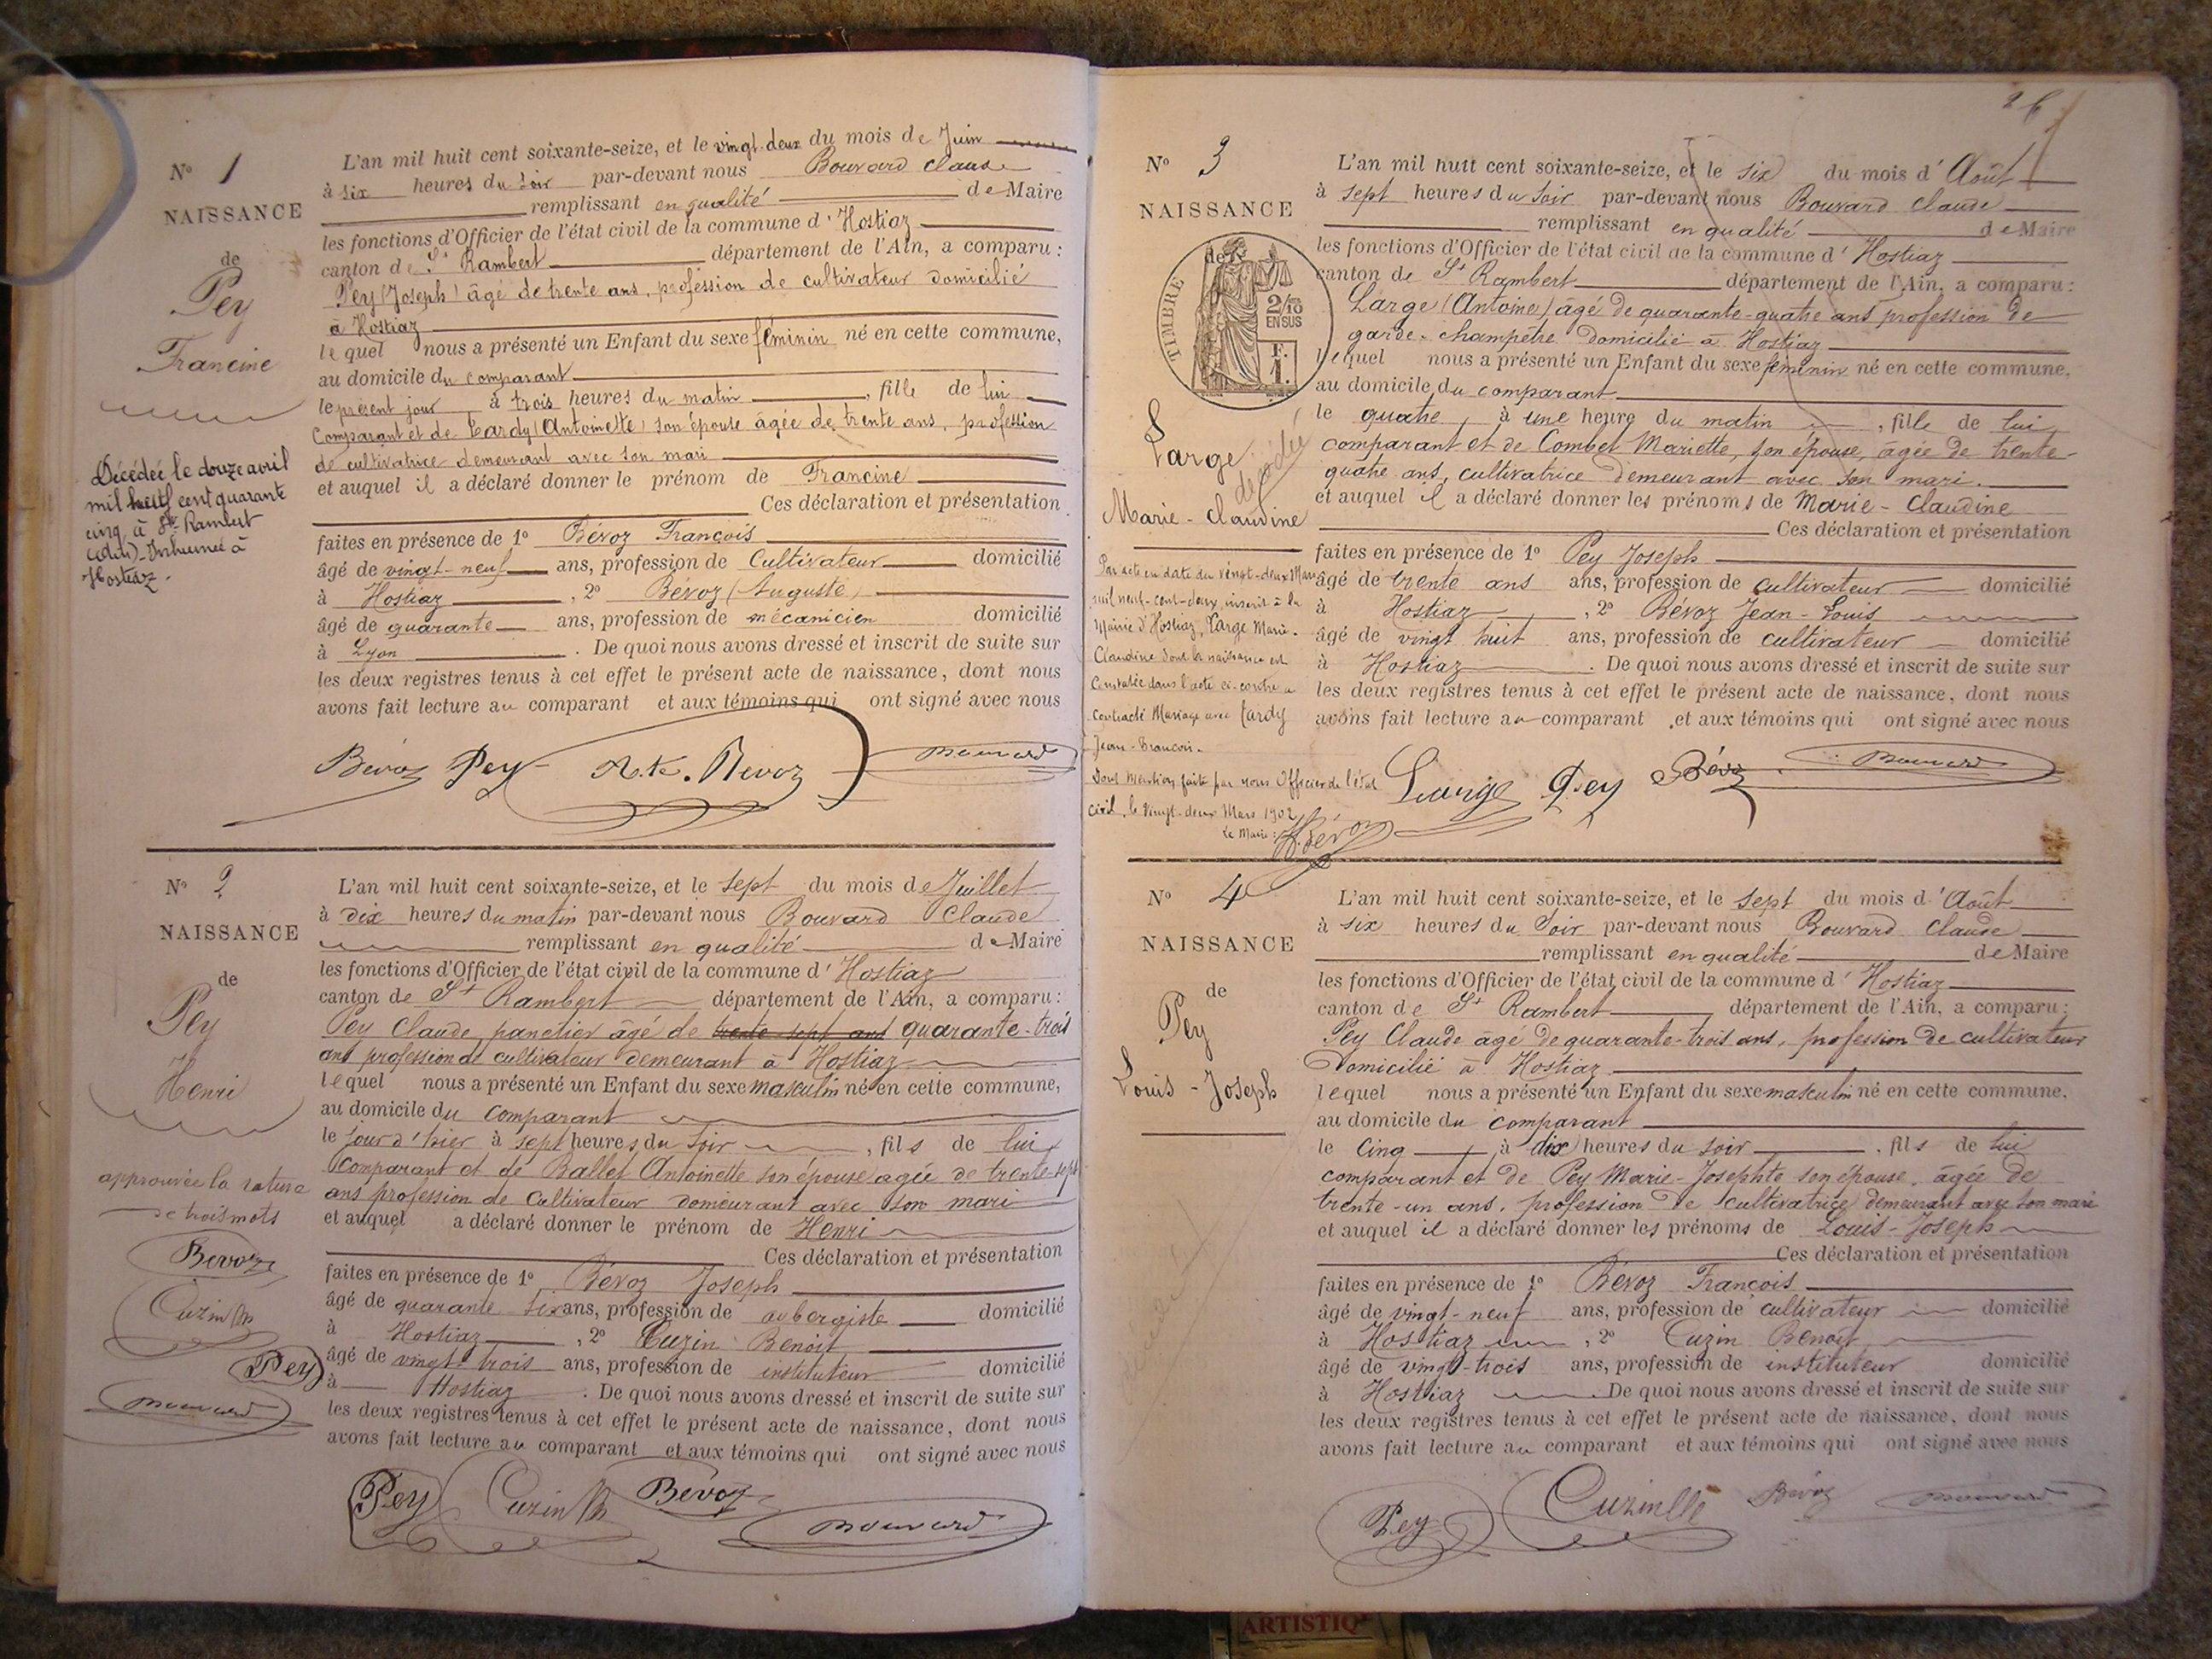 N° 1
NAISSANCE
de
Pey
Francine
Décédée le douze avril
mil neuf cent quarante
cinq à St Rambert
(Ain). Inhumée à
Hostiaz.
L'an mil huit cent soixante-seize, et le vingt-deux du mois de Juin
à six heures du soir par-devant nous Bouvard Claude
remplissant en qualité de Maire
les fonctions d'Officier de l'état civil de la commune d'Hostiaz
canton de St Rambert département de l'Ain, a comparu :
Pey (Joseph) âgé de trente ans, profession de cultivateur domicilié
à Hostiaz
lequel nous a présenté un Enfant du sexe féminin né en cette commune,
au domicile du comparant
le présent jour à trois heures du matin , fille de lui
comparant et de Tardy (Antoinette) son épouse âgée de trente ans, profession
de cultivatrice demeurant avec son mari
et auquel il a déclaré donner le prénom de Francine
Ces déclaration et présentation
faites en présence de 1° Bévoz François
âgé de vingt-neuf ans, profession de Cultivateur domicilié
à Hostiaz , 2° Bévoz (Auguste)
âgé de quarante ans, profession de mécanicien domicilié
à Lyon . De quoi nous avons dressé et inscrit de suite sur
les deux registres tenus à cet effet le présent acte de naissance, dont nous
avons fait lecture au comparant et aux témoins qui ont signé avec nous
Bévoz Pey Bevoz Bouvard
N° 2
NAISSANCE
de
Pey
Henri
approuvée la rature
de trois mots
Bevoz
Cuzin
Pey
Bouvard
L'an mil huit cent soixante-seize, et le sept du mois de Juillet
à dix heures du matin par-devant nous Bouvard Claude
remplissant en qualité de Maire
les fonctions d'Officier de l'état civil de la commune d'Hostiaz
canton de St Rambert département de l'Ain, a comparu :
Pey Claude panetier âgé de trente sept ans quarante-trois
ans profession de cultivateur demeurant à Hostiaz
lequel nous a présenté un Enfant du sexe masculin né en cette commune,
au domicile du comparant
le jour d'hier à sept heures du soir , fils de lui
comparant et de Ballet Antoinette son épouse agée de trente-sept
ans profession de Cultivateur demeurant avec son mari
et auquel a déclaré donner le prénom de Henri
Ces déclaration et présentation
faites en présence de 1° Bévoz Joseph
âgé de quarante six ans, profession de aubergiste domicilié
à Hostiaz , 2° Cuzin Benoit
âgé de vingt-trois ans, profession de instituteur domicilié
à Hostiaz . De quoi nous avons dressé et inscrit de suite sur
les deux registres tenus à cet effet le présent acte de naissance, dont nous
avons fait lecture au comparant et aux témoins qui ont signé avec nous
Pey Cuzin Bévoz Bouvard
26
N° 3
NAISSANCE
de
TIMBRE
2/10
EN SUS
F.
1.
Large
décédée
Marie-Claudine
Par acte en date du vingt-deux Mars
mil neuf-cent-deux, inscrit à la
Mairie d'Hostiaz, Large Marie-
Claudine dont la naissance est
Constatée dans l'acte ci-contre a
Contracté Mariage avec Tardy
Jean-François.
Dont Mention faite par nous Officier de l'état
civil, le vingt-deux Mars 1902
Le Maire : Bévoz
L'an mil huit cent soixante-seize, et le six du mois d'Août
à sept heures du soir par-devant nous Bouvard Claude
remplissant en qualité de Maire
les fonctions d'Officier de l'état civil de la commune d'Hostiaz
canton de St Rambert département de l'Ain, a comparu :
Large (Antoine) âgé de quarante-quatre ans profession de
garde-champêtre domicilié à Hostiaz
lequel nous a présenté un Enfant du sexe féminin né en cette commune,
au domicile du comparant
le quatre à une heure du matin , fille de lui
comparant et de Combet Mariette, son épouse, âgée de trente-
quatre ans, cultivatrice demeurant avec son mari.
et auquel il a déclaré donner les prénoms de Marie-Claudine
Ces déclaration et présentation
faites en présence de 1° Pey Joseph
âgé de trente ans ans, profession de cultivateur domicilié
à Hostiaz , 2° Bévoz Jean-Louis
âgé de vingt huit ans, profession de cultivateur domicilié
à Hostiaz . De quoi nous avons dressé et inscrit de suite sur
les deux registres tenus à cet effet le présent acte de naissance, dont nous
avons fait lecture au comparant et aux témoins qui ont signé avec nous
Large Pey Bévoz Bouvard
N° 4
NAISSANCE
de
Pey
Louis-Joseph
L'an mil huit cent soixante-seize, et le sept du mois d'Août
à six heures du Soir par-devant nous Bouvard Claude
remplissant en qualité de Maire
les fonctions d'Officier de l'état civil de la commune d'Hostiaz
canton de St Rambert département de l'Ain, a comparu :
Pey Claude âgé de quarante-trois ans, profession de cultivateur
Domicilié à Hostiaz
lequel nous a présenté un Enfant du sexe masculin né en cette commune,
au domicile du comparant
le cinq à dix heures du soir , fils de lui
comparant et de Pey Marie-Josephte son épouse, âgée de
trente-un ans, profession de cultivatrice demeurant avec son mari
et auquel il a déclaré donner les prénoms de Louis-Joseph
Ces déclaration et présentation
faites en présence de 1° Bévoz François
âgé de vingt-neuf ans, profession de cultivateur domicilié
à Hostiaz , 2° Cuzin Benoit
âgé de vingt-trois ans, profession de instituteur domicilié
à Hostiaz . De quoi nous avons dressé et inscrit de suite sur
les deux registres tenus à cet effet le présent acte de naissance, dont nous
avons fait lecture au comparant et aux témoins qui ont signé avec nous
Pey Cuzin Bévoz Bouvard
ARTISTIQ